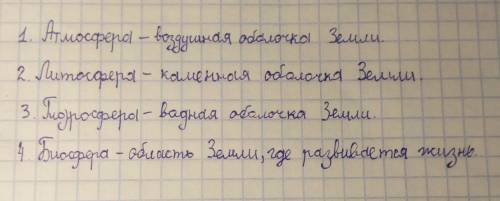 1. Атмосфера - воздушная оболочка Земли.
2. Литосфера - каменная оболочка Земли.
3. Гидросфера - вадная оболочка Земли.
4 Биосфера - область Земли, где развивается жизнь.